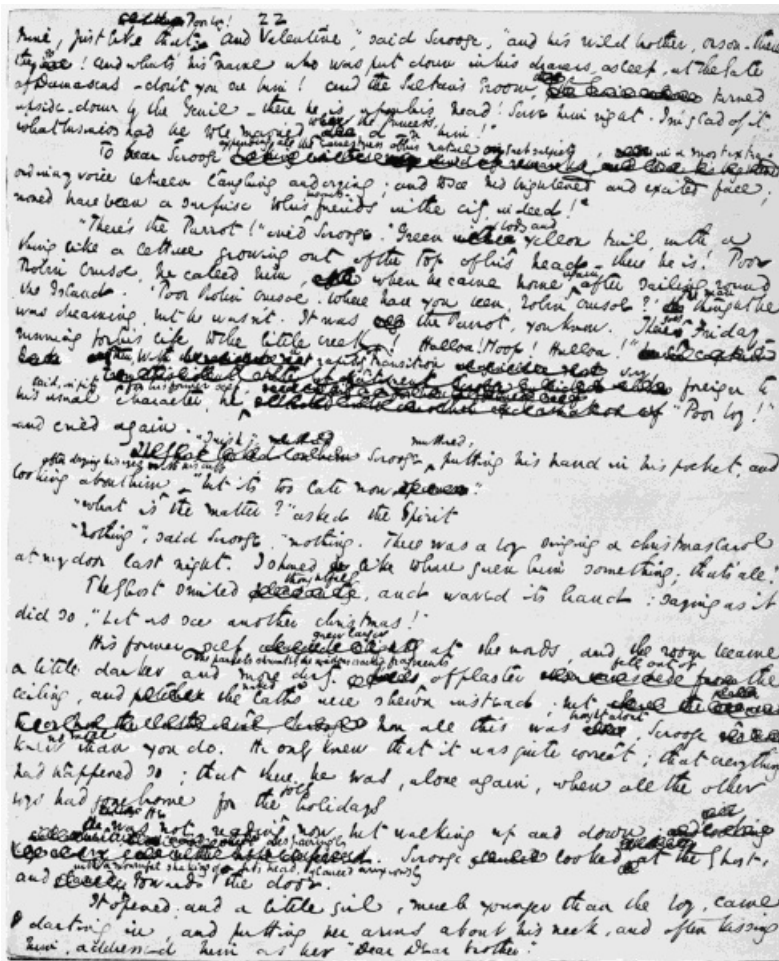 Poor boy! 22
time, just like that. And Valentine," said Scrooge, "and his wild brother, Orson—there
they go! And what's his name who was put down in his drawers, asleep, at the Gate
of Damascus—don't you see him! And the Sultan's Groom, turned
upside-down by the Genii—there he is upon his head! Serve him right. I'm glad of it.
What business had he to be married to the Princess!"
To hear Scrooge expending all the earnestness of his nature on such subjects, in a most extra-
ordinary voice between laughing and crying; and to see his heightened and excited face;
would have been a surprise to his business friends in the city, indeed!
"There's the Parrot!" cried Scrooge. "Green body and yellow tail, with a
thing like a lettuce growing out of the top of his head—there he is! Poor
Robin Crusoe, he called him, when he came home again after sailing round
the Island. 'Poor Robin Crusoe. Where have you been, Robin Crusoe?' The man thought he
was dreaming, but he wasn't. It was the Parrot, you know. There goes Friday
running for his life to the little creek! Halloa! Hoop! Halloa!"
Then, with a rapidity of transition very foreign to
his usual character, he said, in pity for his former self, "Poor boy!"
and cried again.
"I wish", Scrooge muttered, putting his hand in his pocket, and
looking about him after drying his eyes with his cuff, "but it's too late now."
"What is the matter?" asked the Spirit
"Nothing", said Scrooge. "nothing. There was a boy singing a Christmas Carol
at my door last night. I should like to have given him something; that's all."
The Ghost smiled thoughtfully, and waved its hand: saying as it
did so, "Let us see another Christmas!"
His former self grew larger at the words, and the room became
a little darker and more dirty. The pannels shrunk, the windows cracked, fragments of plaster fell out of the
ceiling, and the naked laths were shewn instead; but
how all this was brought about, Scrooge
knew no more than you do. He only knew that it was quite correct; that everything
had happened so; that there he was, alone again, when all the other
boys had gone home for the jolly holidays
He was not reading now, but walking up and down
despairingly. Scrooge looked at the Ghost,
and with a mournful shaking of his head, glanced anxiously towards the door.
It opened, and a little girl, much younger than the boy, came
darting in, and putting her arms about his neck, and often kissing
him, addressed him as her "Dear dear brother."